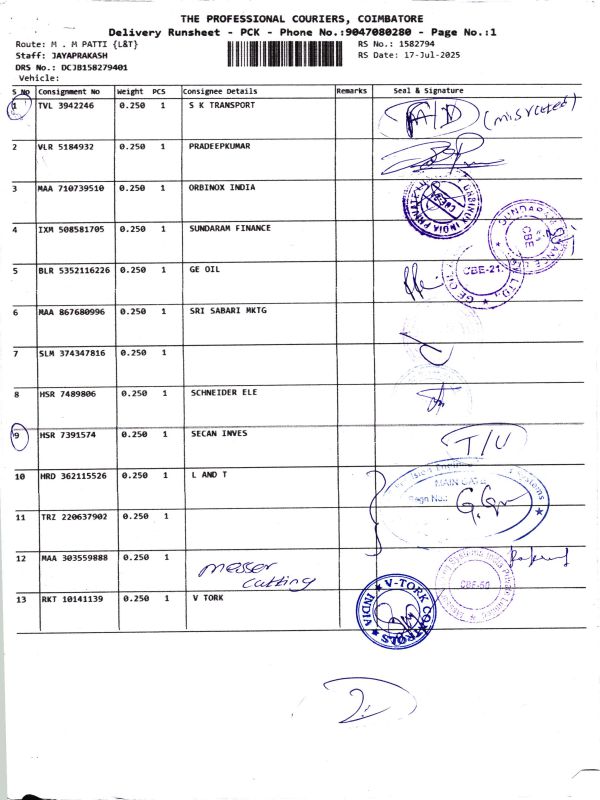 THE PROFESSIONAL COURIERS, COIMBATORE
Delivery Runsheet - PCK - Phone No.:9047080280 - Page No.:1
Route: M . M PATTI {L&T}
RS No.: 1582794
Staff: JAYAPRAKASH
RS Date: 17-Jul-2025
DRS No.: DCJB158279401
Vehicle:
S No Consignment No Weight PCS Consignee Details Remarks Seal & Signature
1 TVL 3942246 0.250 1 S K TRANSPORT (misrouted)
2 VLR 5184932 0.250 1 PRADEEPKUMAR
3 MAA 710739510 0.250 1 ORBINOX INDIA
ORBINOX INDIA PRIVATE
4 IXM 508581705 0.250 1 SUNDARAM FINANCE
CBE
5 BLR 5352116226 0.250 1 GE OIL
CBE-21
6 MAA 867680996 0.250 1 SRI SABARI MKTG
7 SLM 374347816 0.250 1
8 HSR 7489806 0.250 1 SCHNEIDER ELE
9 HSR 7391574 0.250 1 SECAN INVES T/U
10 HRD 362115526 0.250 1 L AND T
MAIN GATE
11 TRZ 220637902 0.250 1
12 MAA 303559888 0.250 1 messer cutting
CBE-50
13 RKT 10141139 0.250 1 V TORK
V-TORK CONTROLS INDIA
2